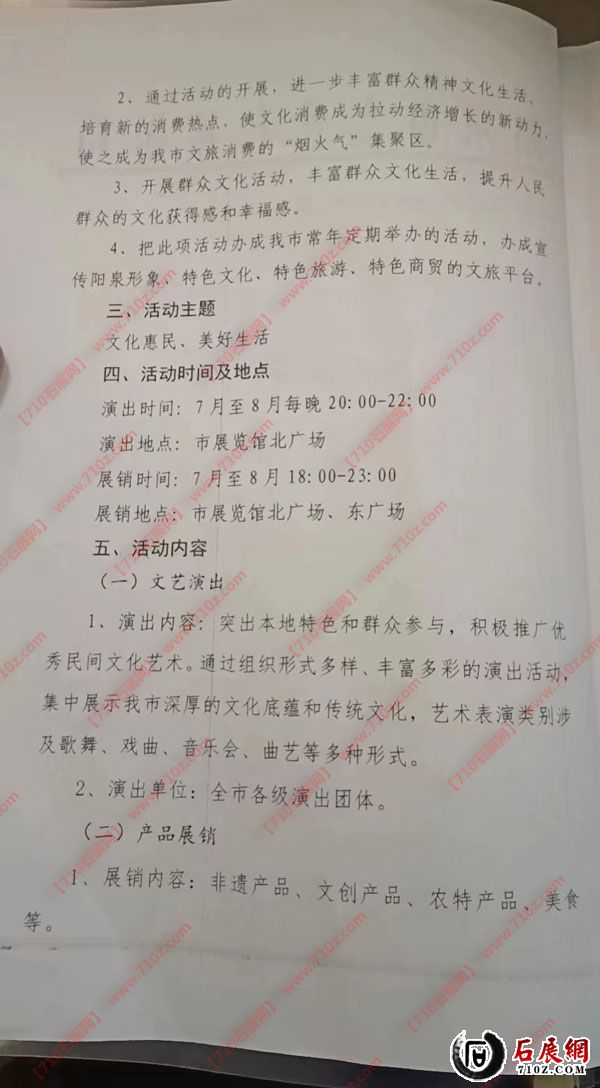 2、通过活动的开展，进一步丰富群众精神文化生活，
培育新的消费热点，使文化消费成为拉动经济增长的新动力，
使之成为我市文旅消费的“烟火气”集聚区。
3、开展群众文化活动，丰富群众文化生活，提升人民
群众的文化获得感和幸福感。
4、把此项活动办成我市常年定期举办的活动，办成宣
传阳泉形象、特色文化、特色旅游、特色商贸的文旅平台。
三、活动主题
文化惠民、美好生活
四、活动时间及地点
演出时间：7月至8月每晚20:00-22:00
演出地点：市展览馆北广场
展销时间：7月至8月18:00-23:00
展销地点：市展览馆北广场、东广场
五、活动内容
（一）文艺演出
1、演出内容：突出本地特色和群众参与，积极推广优
秀民间文化艺术。通过组织形式多样、丰富多彩的演出活动，
集中展示我市深厚的文化底蕴和传统文化，艺术表演类别涉
及歌舞、戏曲、音乐会、曲艺等多种形式。
2、演出单位：全市各级演出团体。
（二）产品展销
1、展销内容：非遗产品、文创产品、农特产品、美食
等。
【710石展网】www.710z.com
石展網
710Z.COM